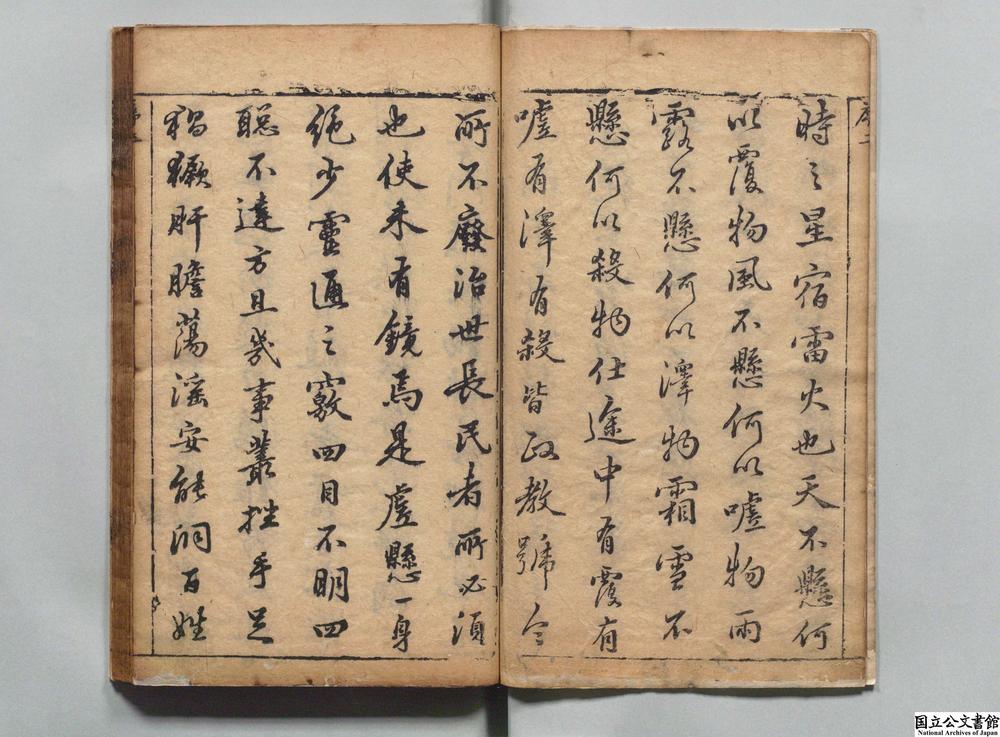 時之星宿雷火也天不懸何
以覆物風不懸何以噓物雨
露不懸何以澤物霜雪不
懸何以殺物仕途中有覆有
噓有澤有殺皆政教號令
所不廢治世長民者所必須
也使未有鏡焉是虛懸一身
絕少靈通之竅四目不明四
聰不達方且幾事叢挫手足
猖獗肝膽蕩滛安能洞百姓
国立公文書館
National Archives of Japan